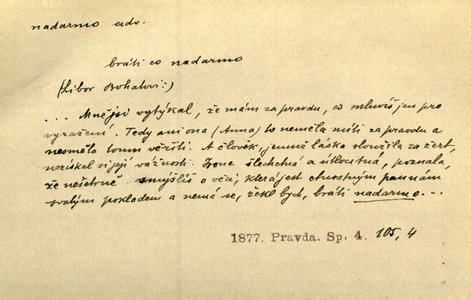 nadarmo adv.
bráti co nadarmo
(Libor Bohatýr:)
... Mnějs vytýkal, že mám za pravdu, co mluvíš jen pro
vyražení. Tedy ani ona (Anna) to neměla míti za pravdu a
nesměla tomu věřiti. A člověk, jemuž láska sloužila za žert,
nezískal si její vážnosti. Jsouc šlechetná a útlocitná, poznala,
že nešetrně smýšlíš o věci, která jest ctnostným pannám
svatým pokladem a nemá se, řekl bych, bráti nadarmo. ...
1877. Pravda. Sp. 4. 105, 4